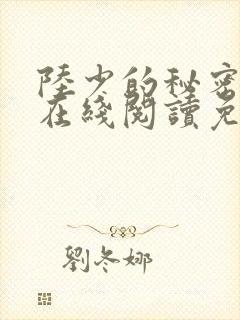 陸少的秘密
在綫閱讀免
劉冬娜